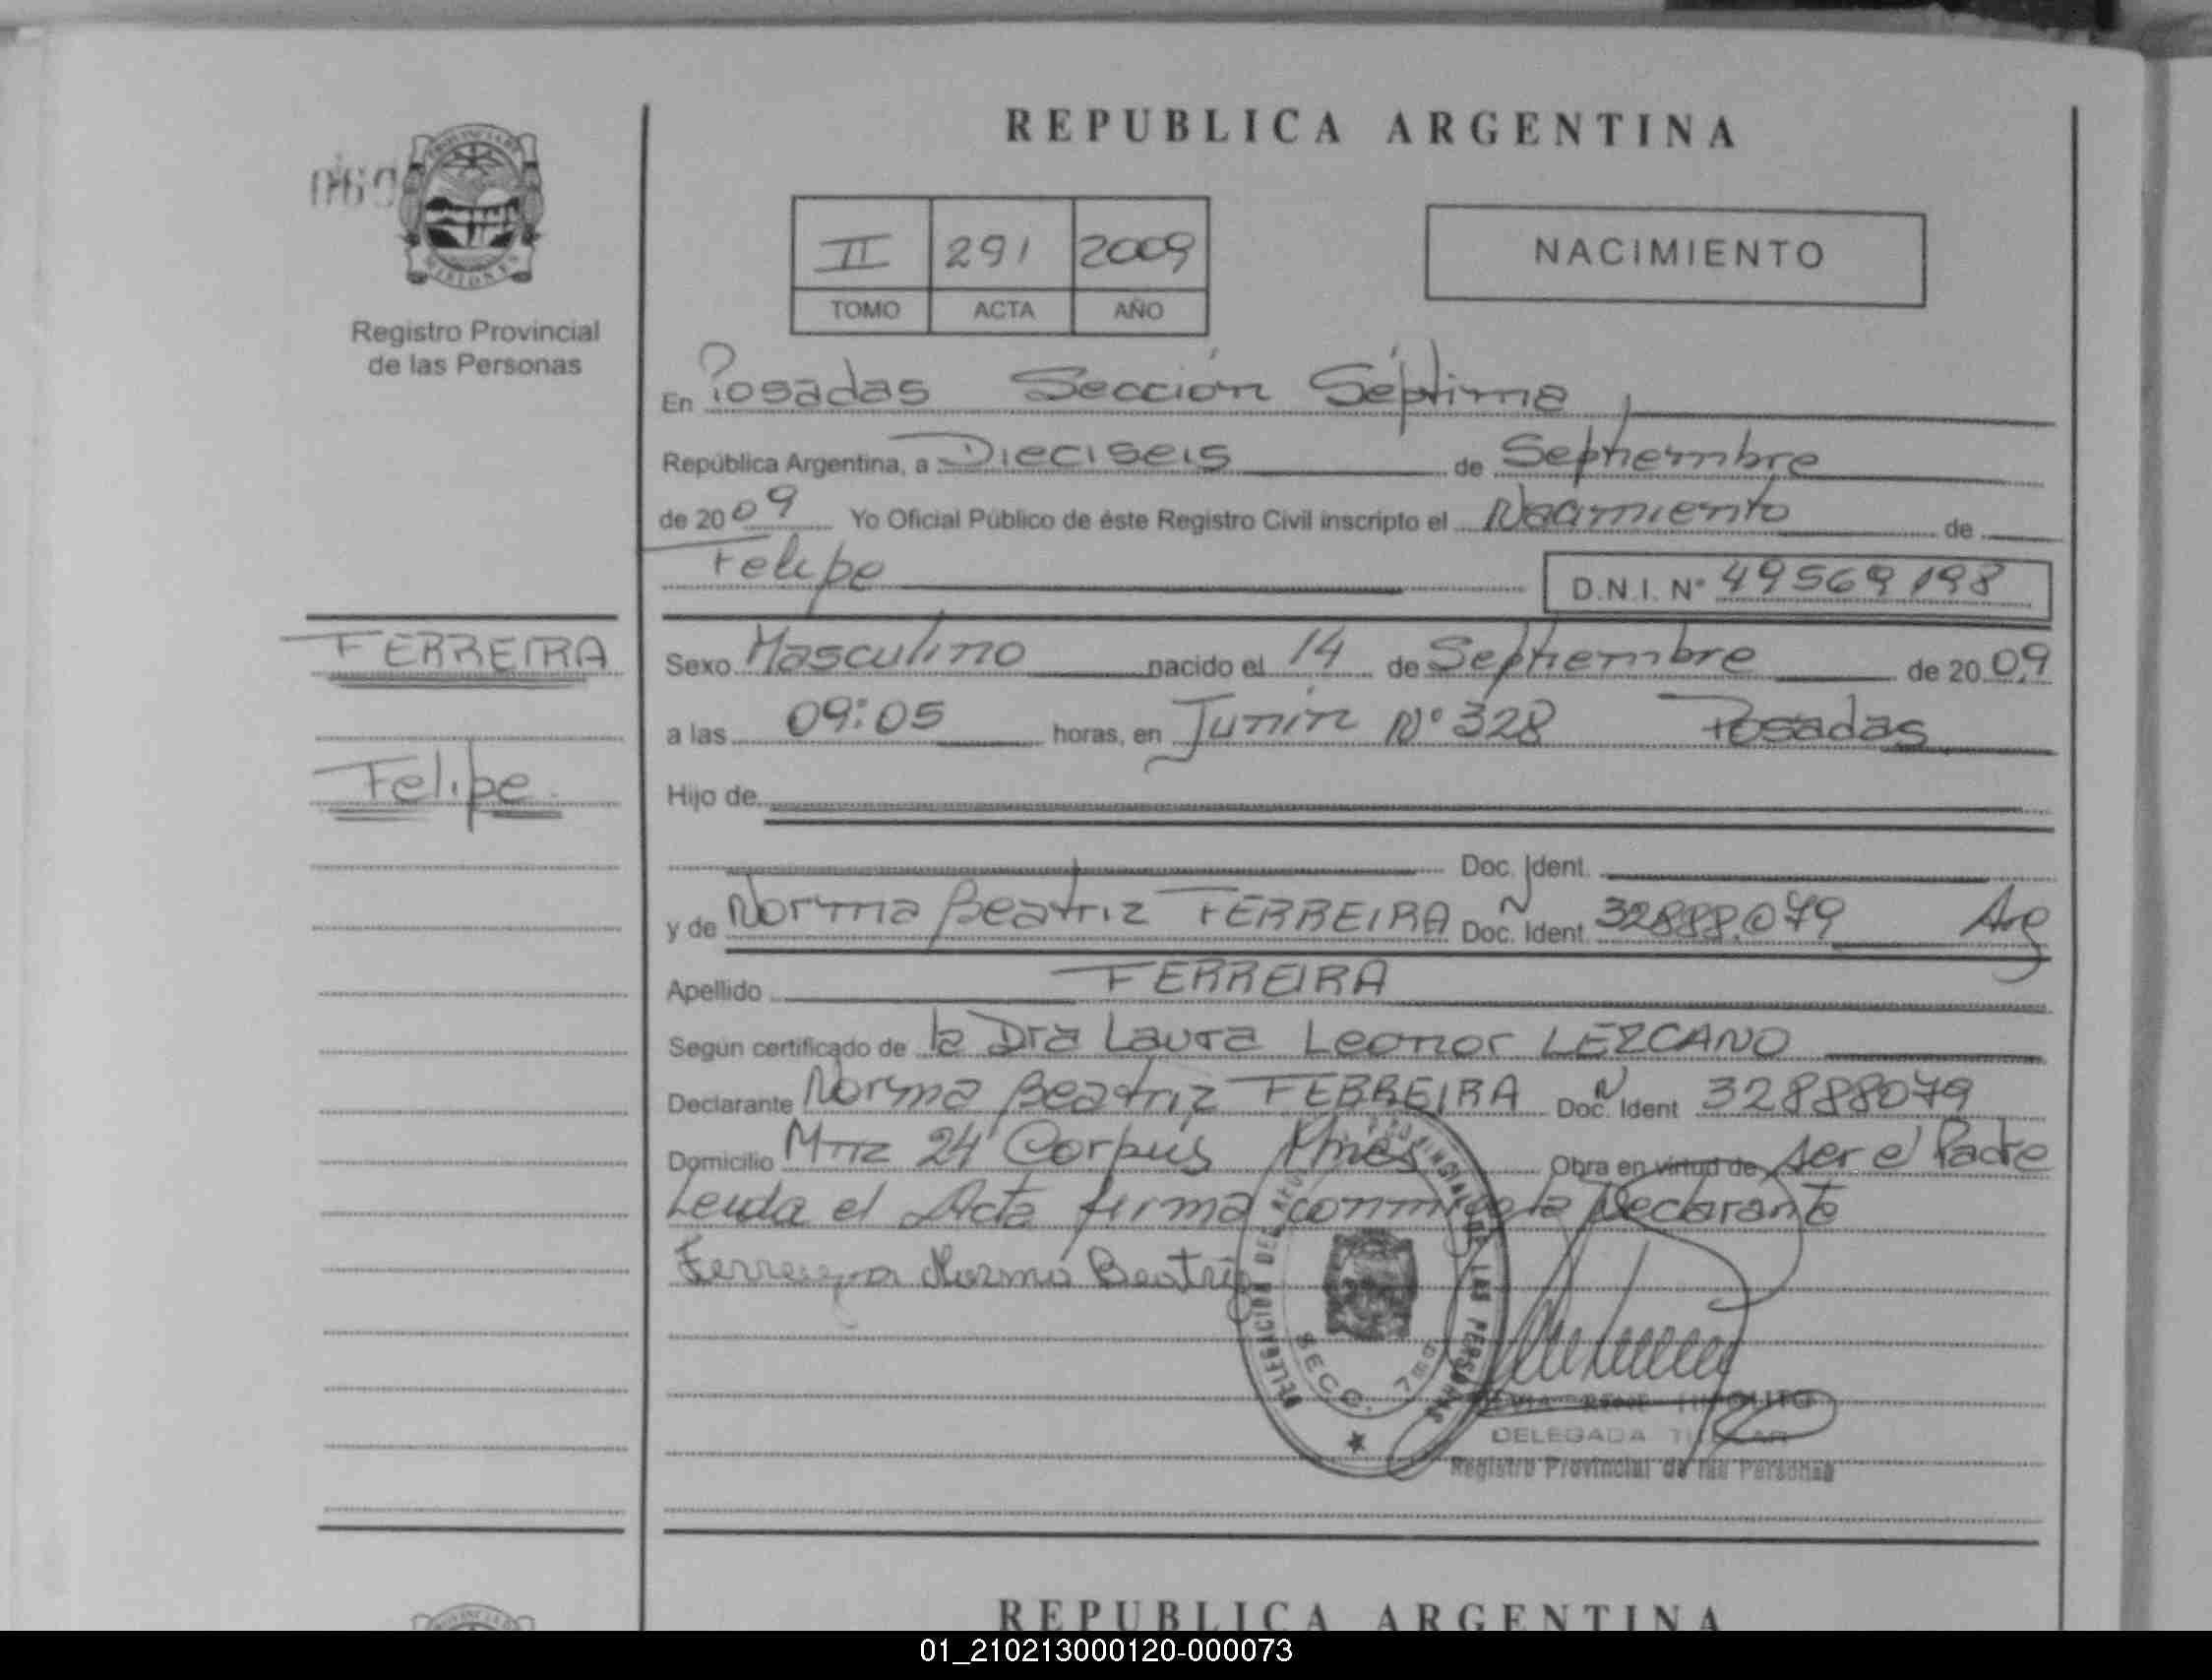 REPUBLICA ARGENTINA
069
PROVINCIA DE
MISIONES
Registro Provincial
de las Personas
II 291 2009
TOMO ACTA AÑO
NACIMIENTO
En Posadas Sección Séptima
República Argentina, a Dieciseis de Septiembre
de 2009 Yo Oficial Público de éste Registro Civil inscripto el Nacimiento de
Felipe D.N.I. Nº 49569198
FERREIRA
Felipe
Sexo Masculino nacido el 14 de Septiembre de 2009
a las 09:05 horas, en Junín Nº 328 Posadas
Hijo de
Doc. Ident.
y de Norma Beatriz FERREIRA Doc. Ident. 32888.079 Arg
Apellido FERREIRA
Según certificado de la Dra Laura Leonor LEZCANO
Declarante Norma Beatriz FERREIRA Doc. Ident 32888079
Domicilio Mnz 24 Corpus Mnes Obra en virtud de ser el Padre
Leida el Acta firma conmigo la Declarante
Ferreyra Norma Beatriz
DELEGACION DEL REG. PROVINCIAL DE LAS PERSONAS
SECC. 7ma
RENE HIPOLITO
DELEGADA TITULAR
Registro Provincial de las Personas
REPUBLICA ARGENTINA
01_210213000120-000073